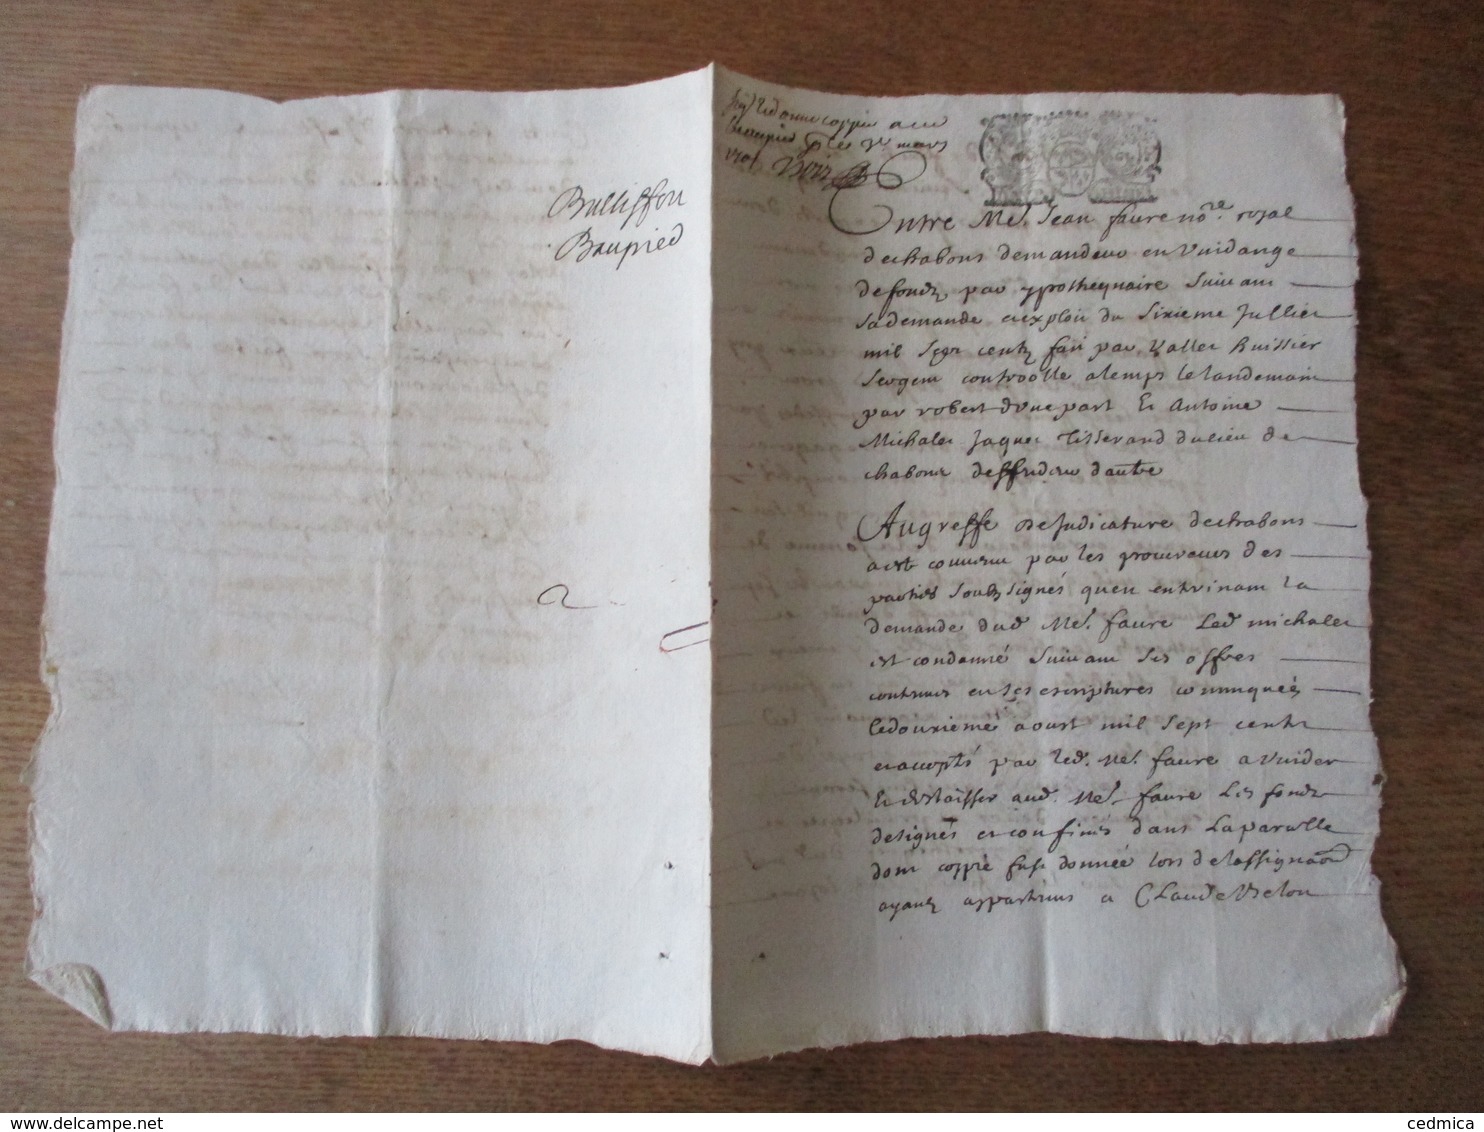 Bullisson
Beaupied
donne coppie a
Beaupied ce 7e mars
1701 Boir
Entre Me. Jean faure nore. royal
dechabons demandeur en Vuidange
defondz par ypothequaire suivant
sa demande et exploit du sixieme Juillet
mil sept centz fait par Vallet huissier
sergent controolle a temps le landemain
par robert d'une part Et Antoine
Michalet Jaques Tisserand du lieu de
chabons deffendeur d'autre
Au greffe de Judicature dechabons
a est convenu par les procureurs des
parties soubzsignés quen entrinant la
demande dud. Me. faure Led michalet
est condanné suivant ses offres
contenues en ses escriptures comuniquées
le douxiemé aoust mil sept centz
et acceptés par led. Me. faure a vuider
Et delaisser aud. Me. faure Les fondz
designés et confinés dans La parcelle
dont coppie fust donnée lors de lassignaon
ayant appartenus a Claude Vielon
cedmica
www.delcampe.net